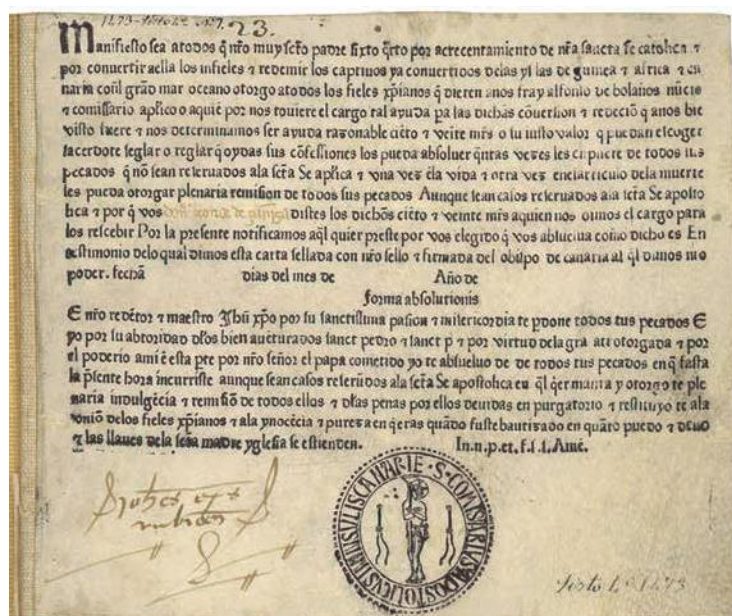 23.
Manifiesto sea atodos q̃ nr̃o muy scr̃o padre sixto q̃rto por acrecentamiento de nr̃a sancta fe catholica ⁊
por conuertir aella los infieles ⁊ redemir los captiuos ya conuertidos delas yslas de guinea ⁊ africa ⁊ ca
naria con̄l grãd mar oceano otorgo atodos los fieles xp̃ianos q̃ dieren anos fray alfonso de bolaños nũcio
⁊ comissario apl̃ico o aquiẽ por nos touiere el cargo tal ayuda pa las dichas cõuersiõ ⁊ redeciõ q̃ anos bie
visto fuere ⁊ nos determinamos ser ayuda rasonable ciẽto ⁊ veite mr̃s o su iusto valor q̃ puedan escoger
sacerdote seglar o reglar q̃ oydas sus cõfessiones los pueda absoluer q̃ntas veses les de todos sus
pecados q̃ nõ sean reseruados ala sc̃ta Se apl̃ica ⁊ vna ves ẽla vida ⁊ otra ves enel articulo dela muerte
les pueda otorgar plenaria remision de todos sus pecados Aunque sean casos reseruados ala sc̃ta Se aposto
lica ⁊ por q̃ vos distes los dichos ciẽto ⁊ veinte mr̃s aquien nos dimos el cargo para
los rescebir Por la presente notificamos aq̃l quier preste por vos elegido q̃ vos absuelua como dicho es En
testimonio delo qual dimos esta carta sellada con nr̃o sello ⁊ firmada del obispo de canaria al q̃l dimos nr̃o
poder. fecha dias del mes de Año de
forma absolutionis
E nr̃o redẽtor ⁊ maestro Jhũ xp̃o por su sanctissima pasion ⁊ misericordia te p̃done todos tus pecados E
yo por su abtoridad ⁊ dl̃os bien auẽturados sanct pedro ⁊ sanct p ⁊ por virtud dela gr̃a ati otorgada ⁊ por
el poderio ami ẽ esta pte por nr̃o señor el papa cometido yo te absueluo de de todos tus pecados en q̃ fasta
la p̃sente hora incurriste aunque sean casos reserũdos ala sc̃ta Se apostolica en q̃l q̃er manera y otorgo te ple
naria indulgẽcia ⁊ remisiõ de todos ellos ⁊ dl̃as penas por ellos deuidas en purgatorio ⁊ restituyo te ala
vniõ delos fieles xp̃ianos ⁊ ala ynocẽcia ⁊ puresa en q̃ eras quãdo fuste bautisado en quãto puedo ⁊ deuo
⁊ las llaues dela scr̃a madre yglesia se estienden. In.n.p.et.f.s.s.Amẽ.